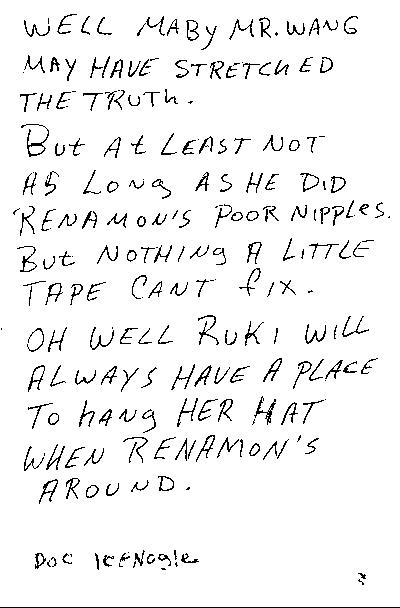 WELL MABy MR. WANG
MAY HAVE STRETCHED
THE TRUTh.
But At LEAST NOT
AS LONg AS HE DID
RENAMON'S POOR NIPPLES.
But NOTHINg A LITTLE
TAPE CANT fIX.
OH WELL RUKI WILL
ALWAYS HAVE A PLACE
To hANg HER HAT
WHEN RENAMON'S
AROUND.
DOC ICENOgle